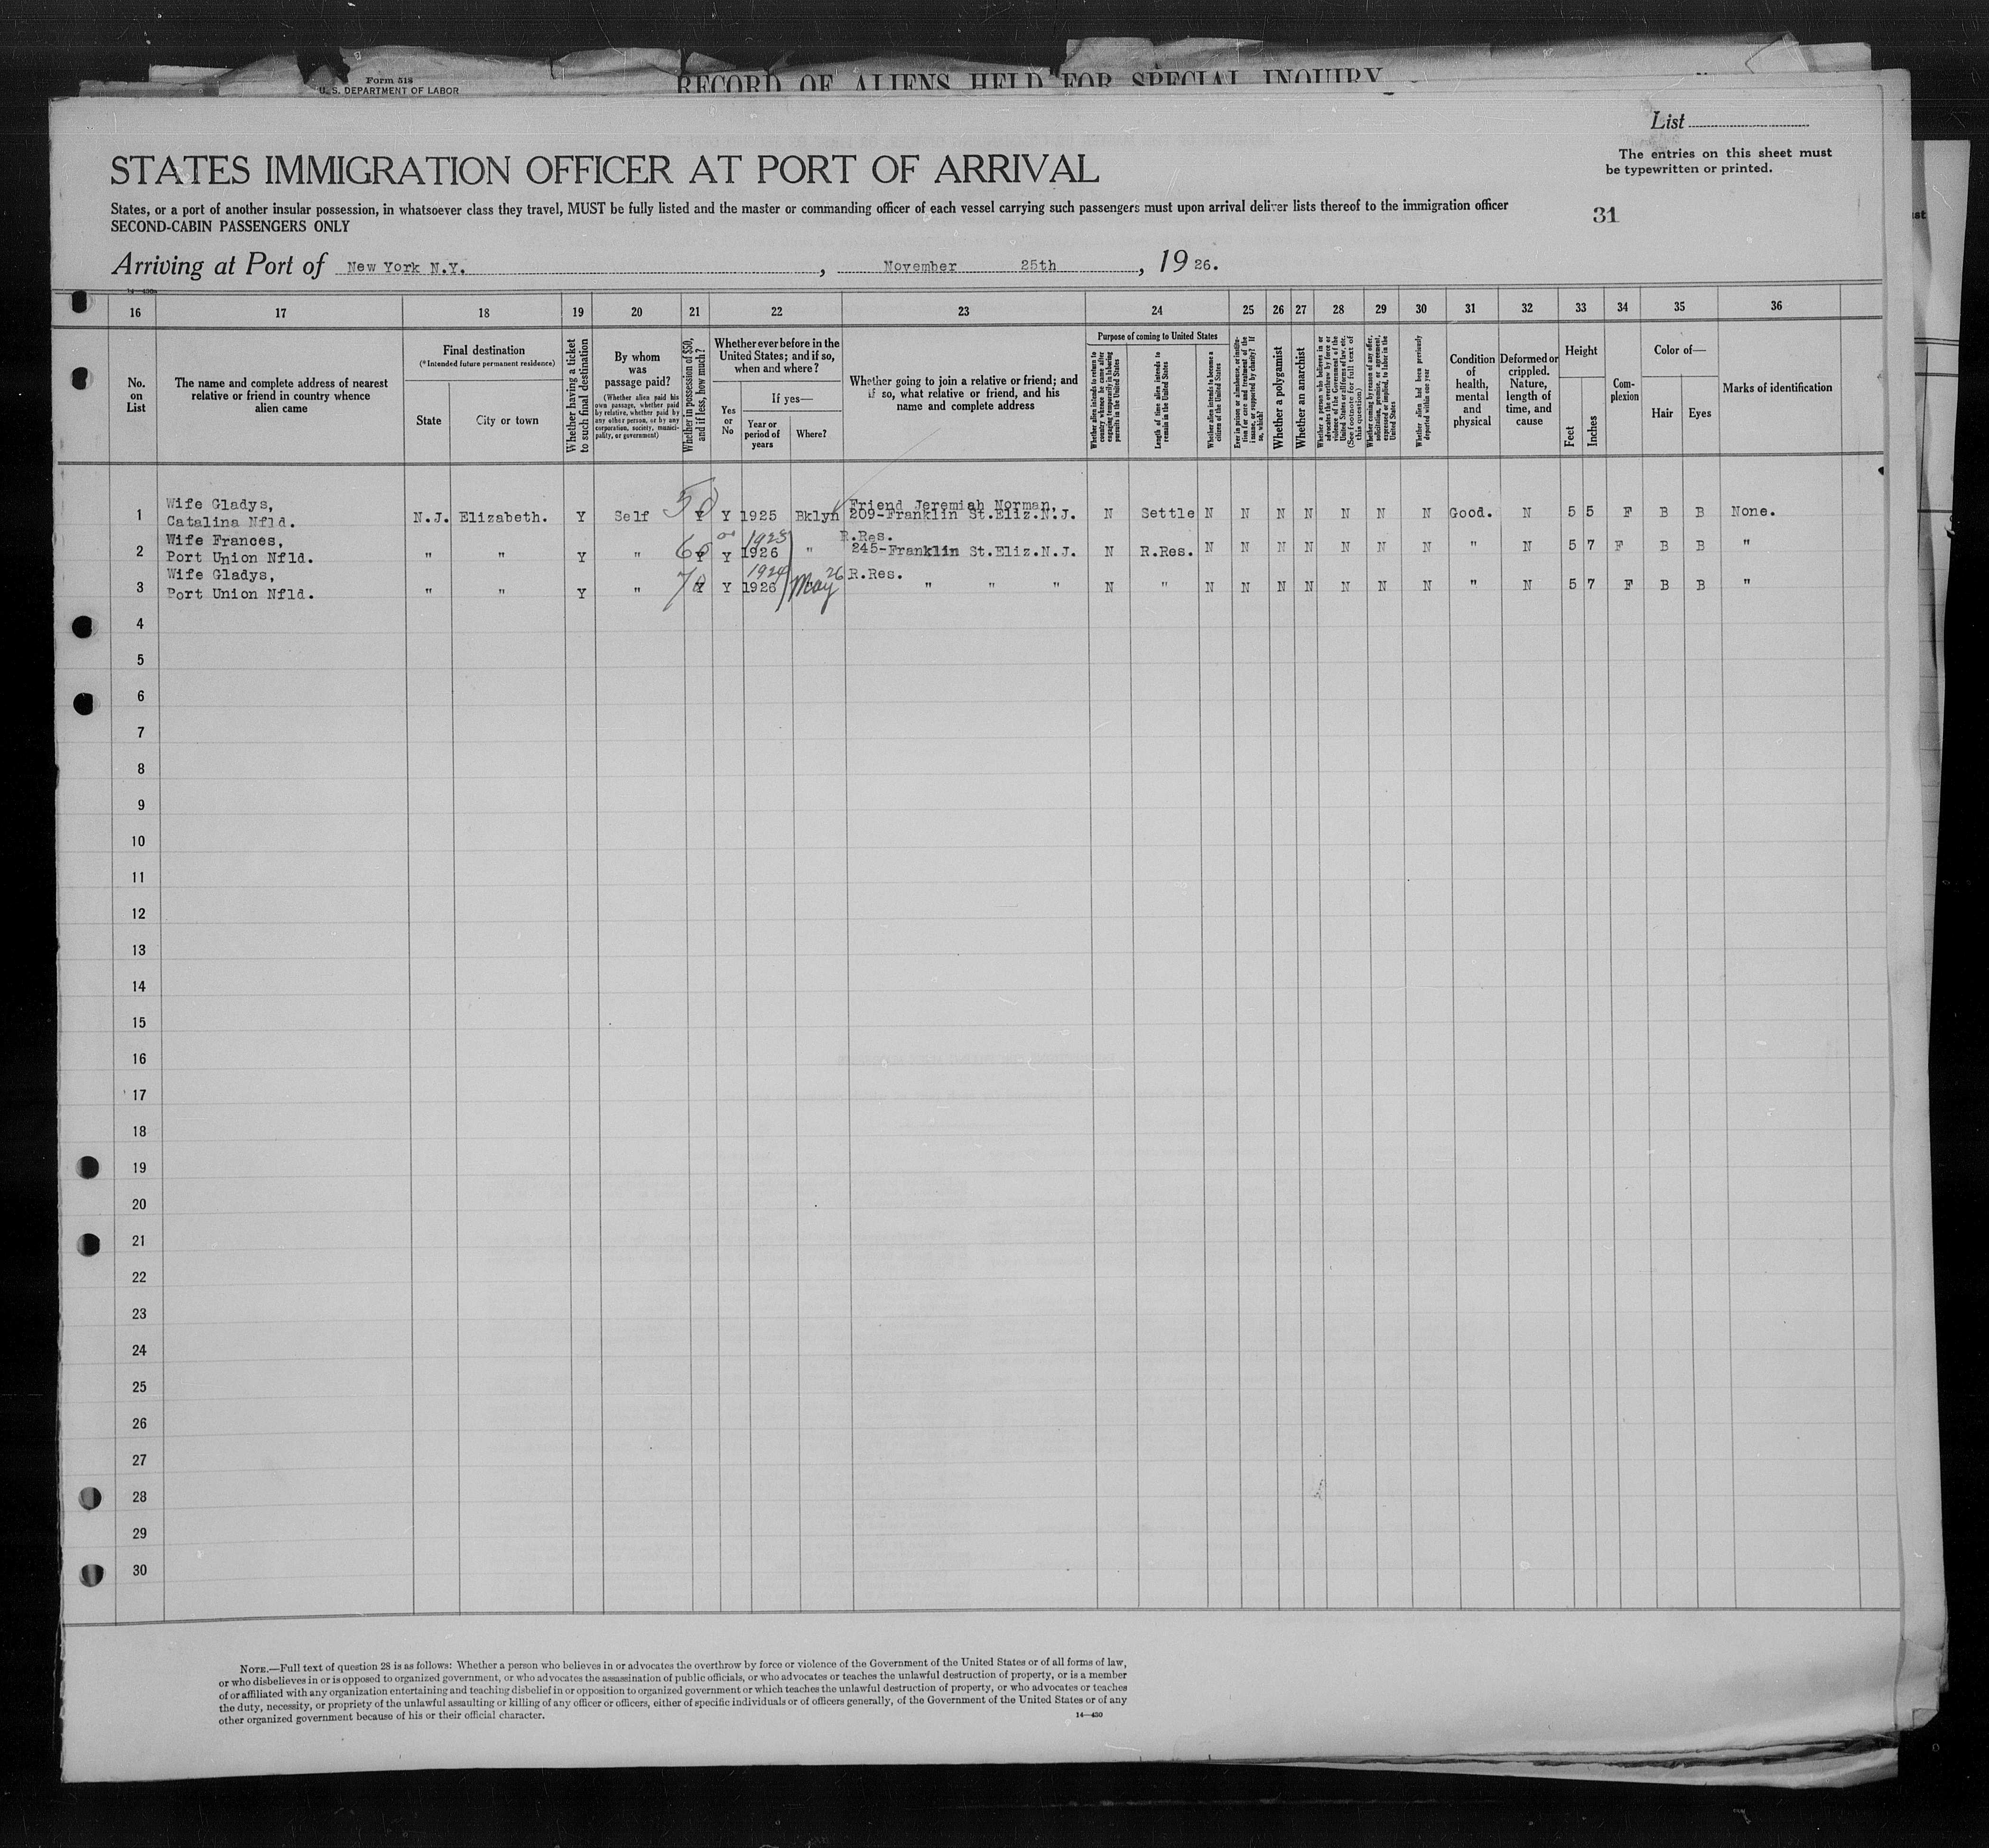 Form 518
U. S. DEPARTMENT OF LABOR
RECORD OF ALIENS HELD FOR SPECIAL INQUIRY
List
The entries on this sheet must
be typewritten or printed.
STATES IMMIGRATION OFFICER AT PORT OF ARRIVAL
States, or a port of another insular possession, in whatsoever class they travel, MUST be fully listed and the master or commanding officer of each vessel carrying such passengers must upon arrival deliver lists thereof to the immigration officer
SECOND-CABIN PASSENGERS ONLY
31
Arriving at Port of New York N.Y. , November 25th , 19 26.
16 17 18 19 20 21 22 23 24 25 26 27 28 29 30 31 32 33 34 35 36
No. on List
The name and complete address of nearest relative or friend in country whence alien came
Final destination
(*Intended future permanent residence)
State
City or town
Whether having a ticket to such final destination
By whom was passage paid?
(Whether alien paid his own passage, whether paid by relative, whether paid by any other person, or by any corporation, society, municipality, or government)
Whether in possession of $50, and if less, how much?
Whether ever before in the United States; and if so, when and where?
Yes or No
If yes—
Year or period of years
Where?
Whether going to join a relative or friend; and if so, what relative or friend, and his name and complete address
Purpose of coming to United States
Whether alien intends to return to country whence he came after engaging temporarily in laboring pursuits in the United States
Length of time alien intends to remain in the United States
Whether alien intends to become a citizen of the United States
Ever in prison or almshouse, or institution for care and treatment of the insane, or supported by charity? If so, which?
Whether a polygamist
Whether an anarchist
Whether a person who believes in or advocates the overthrow by force or violence of the Government of the United States or all forms of law, etc. (See footnote for full text of this question)
Whether coming by reason of any offer, solicitation, promise, or agreement, expressed or implied, to labor in the United States
Whether alien had been previously deported within one year
Condition of health, mental and physical
Deformed or crippled. Nature, length of time, and cause
Height
Feet
Inches
Complexion
Color of—
Hair
Eyes
Marks of identification
1 Wife Gladys, Catalina Nfld. N.J. Elizabeth. Y Self 50 Y Y 1925 Bklyn Friend Jeremiah Norman, 209-Franklin St.Eliz.N.J. N Settle N N N N N N N Good. N 5 5 F B B None.
2 Wife Frances, Port Union Nfld. " " Y " 60 Y Y 1923 1926 " R.Res. 245-Franklin St.Eliz.N.J. N R.Res. N N N N N N N " N 5 7 F B B "
3 Wife Gladys, Port Union Nfld. " " Y " 70 Y Y 1924 1926 May 26 R.Res. " " " N " N N N N N N N " N 5 7 F B B "
4
5
6
7
8
9
10
11
12
13
14
15
16
17
18
19
20
21
22
23
24
25
26
27
28
29
30
NOTE.—Full text of question 28 is as follows: Whether a person who believes in or advocates the overthrow by force or violence of the Government of the United States or of all forms of law,
or who disbelieves in or is opposed to organized government, or who advocates the assassination of public officials, or who advocates or teaches the unlawful destruction of property, or is a member
of or affiliated with any organization entertaining and teaching disbelief in or opposition to organized government or which teaches the unlawful destruction of property, or who advocates or teaches
the duty, necessity, or propriety of the unlawful assaulting or killing of any officer or officers, either of specific individuals or of officers generally, of the Government of the United States or of any
other organized government because of his or their official character.
14—430